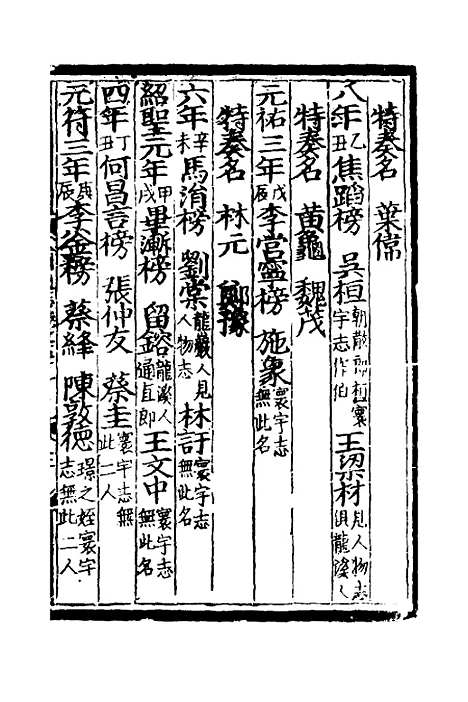 特奏名 葉傑
八年乙丑焦蹈榜 吳桓朝散郎桓寰宇志作伯 王梁材見人物志俱龍溪人
特奏名 黃龜 魏茂
元祐三年戊辰李常寧榜 施象寰宇志無此名
特奏名 林元 鄭豫
六年辛未馬涓榜 劉棠龍巖人見人物志 林訏寰宇志無此名
紹聖元年甲戌畢漸榜 留鎔龍溪人通直郎 王文中寰宇志無此名
四年丁丑何昌言榜 張仲友 蔡圭寰宇志無此二人
元符三年庚辰李釜榜 蔡絳 陳敦德璟之姪寰宇志無此二人